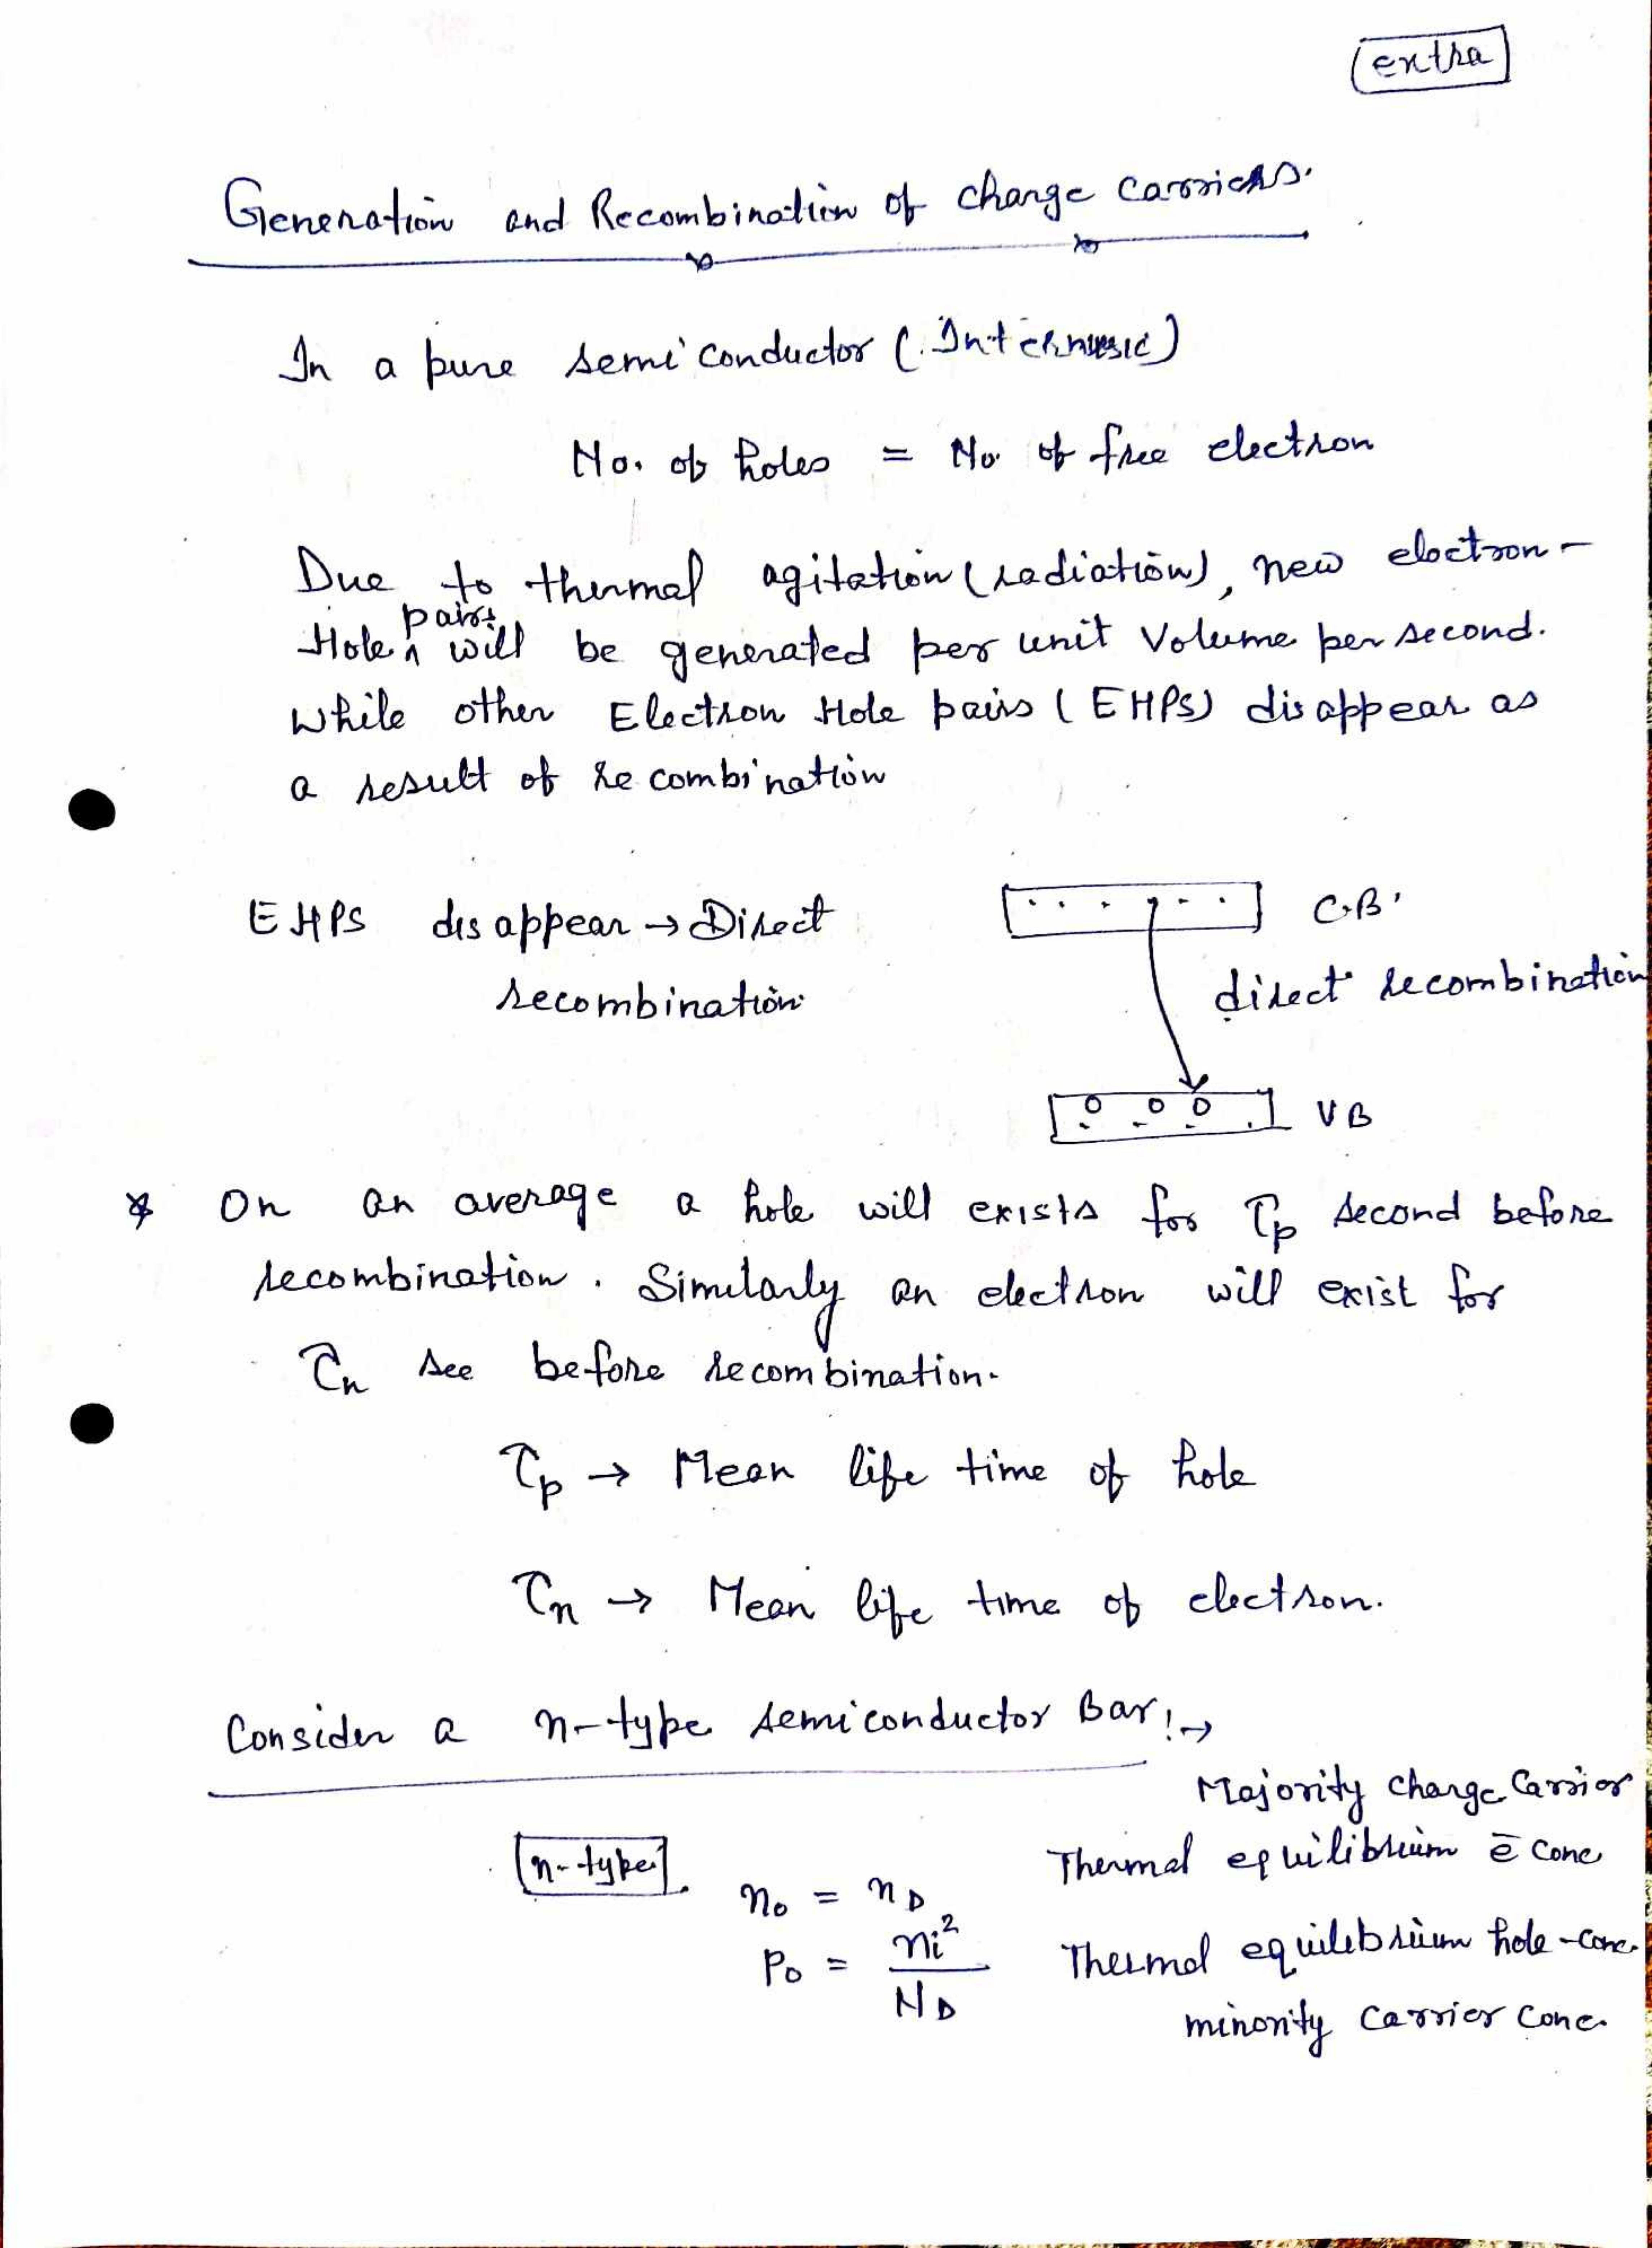 extra
Generation and Recombination of charge carriers.
In a pure semiconductor (Internsic)
No. of holes = No. of free electron
Due to thermal agitation (radiation), new electron-
pairs
Hole ^ will be generated per unit Volume per second.
while other Electron Hole pairs (EHPS) disappear as
a result of recombination
EHPS disappear → Direct
recombination
C.B.
direct recombination
VB
* On an average a hole will exists for τp second before
recombination. Similarly an electron will exist for
τn sec before recombination.
τp → Mean life time of hole
τn → Mean life time of electron.
Consider a n-type semiconductor Bar!→
Majority charge Carrier
n-type
Thermal equilibrium ē conc
n0 = nD
p0 = ni²/ND
Thermal equilibrium hole-conc.
minority carrier conc.